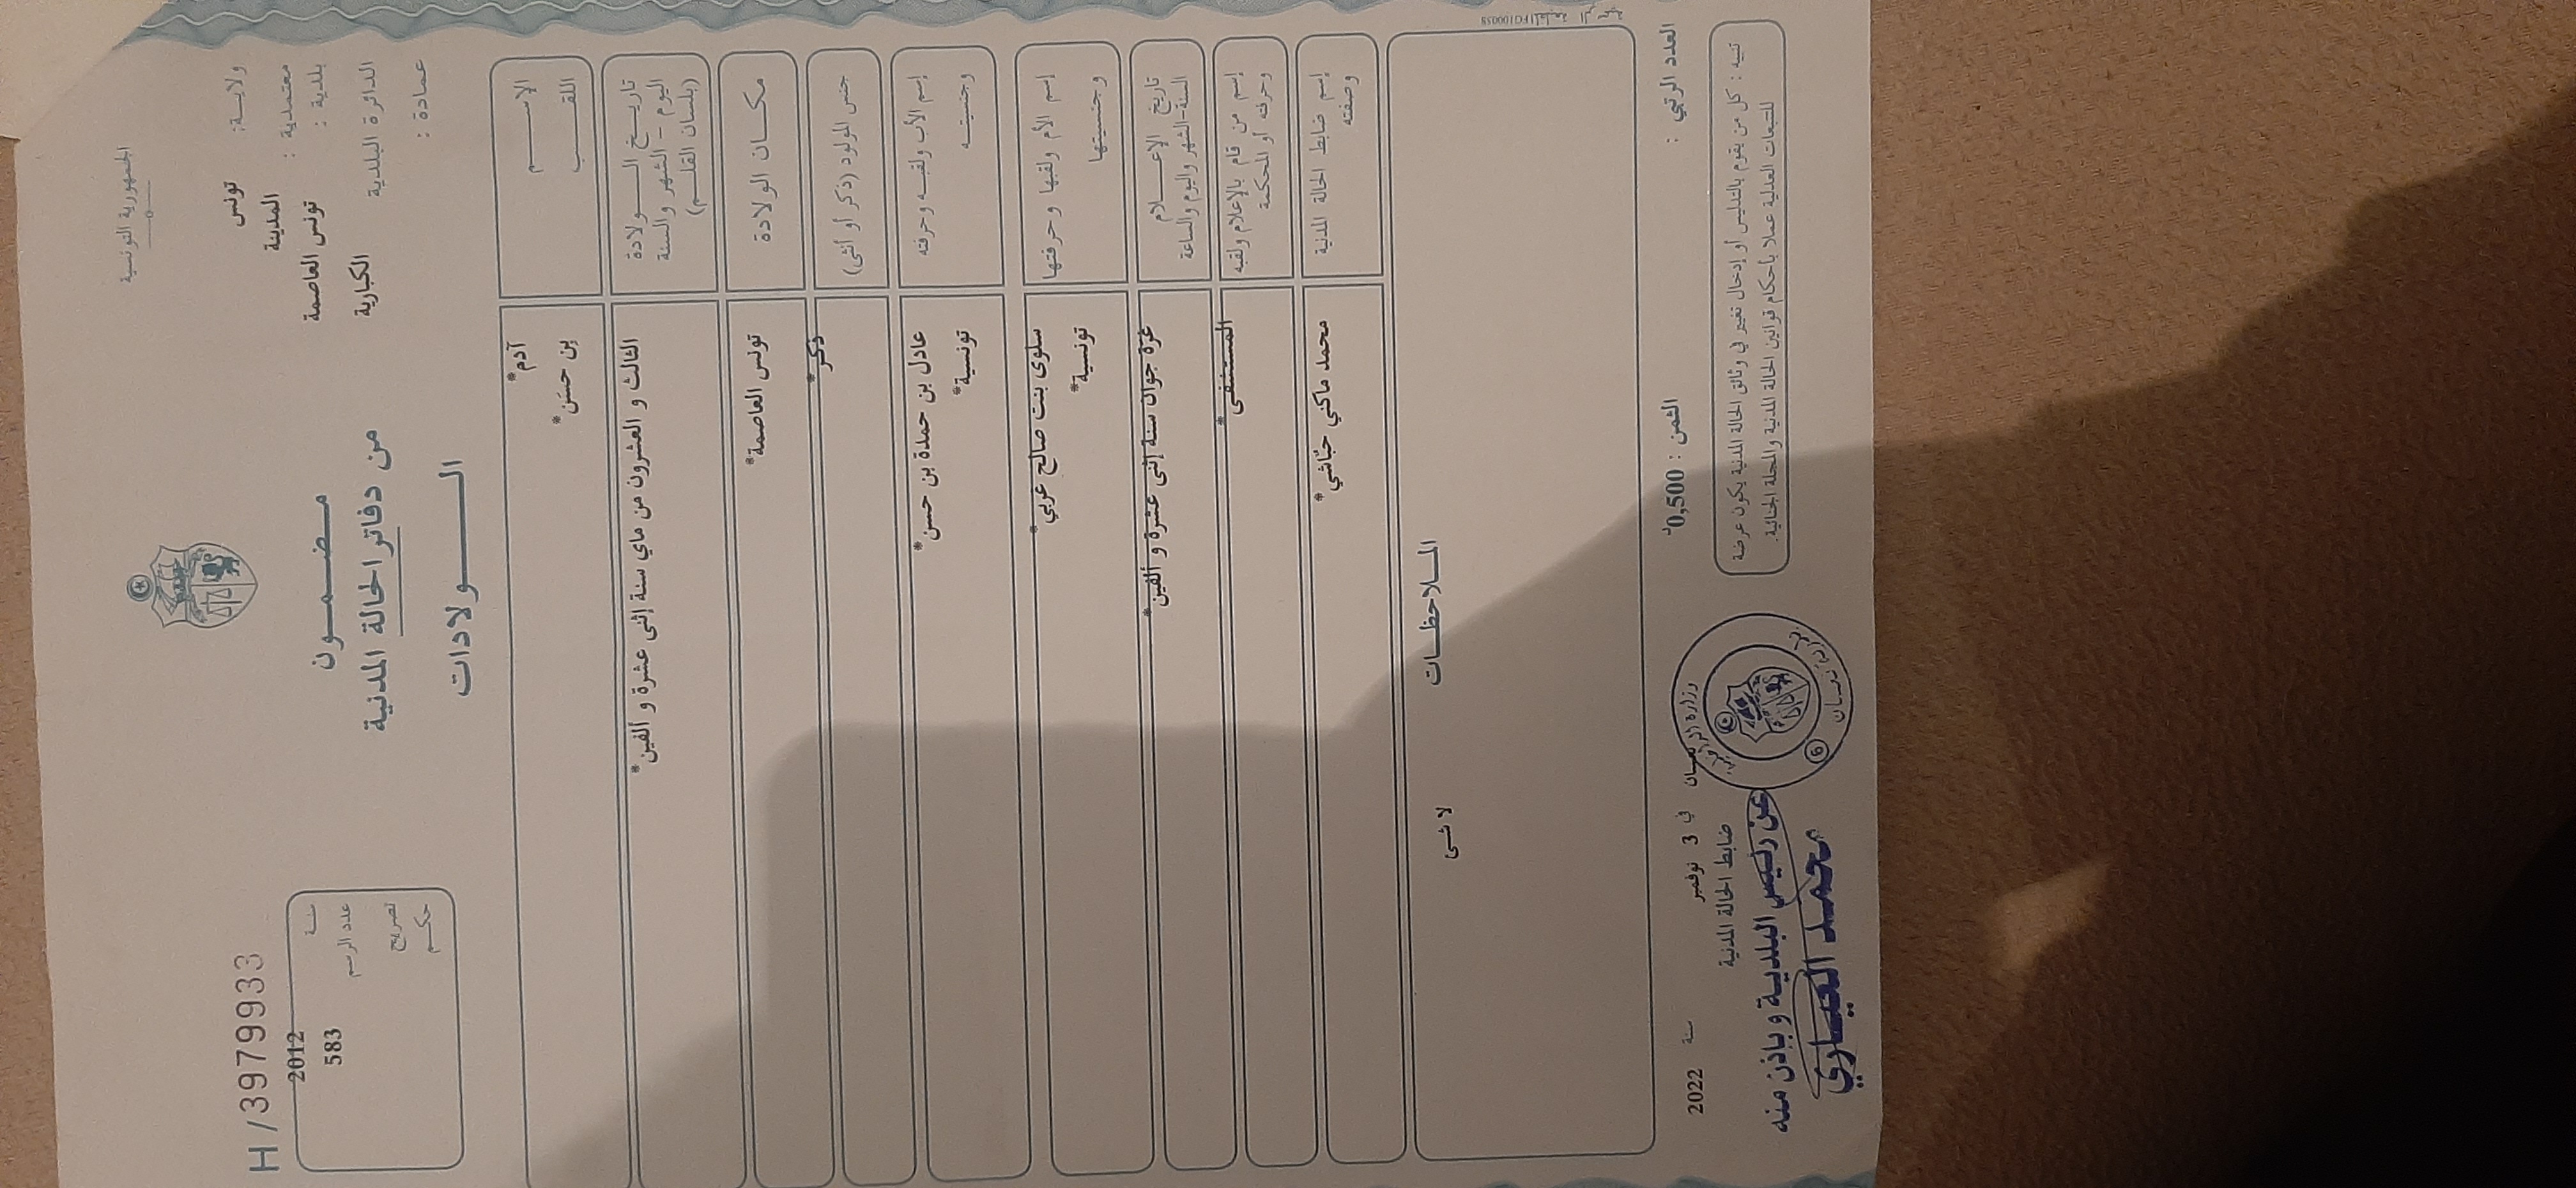 الجمهورية التونسية
ولاية: تونس
معتمدية : المدينة
بلدية : تونس العاصمة
الدائرة البلدية الكبارية
عمادة :
مضمون
من دفاتر الحالة المدنية
الولادات
H/3979933
سنة 2012
عدد الرسم 583
تصريح
حكم
الإسم آدم*
اللقب بن حسن*
تاريخ الولادة
اليوم - الشهر والسنة
(بلسان القلم)
الثالث و العشرون من ماي سنة إثنى عشرة و ألفين*
مكان الولادة تونس العاصمة*
جنس المولود (ذكر أو أنثى) ذكر*
إسم الأب ولقبه وحرفته عادل بن حمدة بن حسن*
وجنسيته تونسية*
إسم الأم ولقبها وحرفتها سلوى بنت صالح غربي*
وجنسيتها تونسية*
تاريخ الإعلام
السنة-الشهر واليوم والساعة
غرة جوان سنة إثنى عشرة و ألفين*
إسم من قام بالإعلام ولقبه
وحرفته أو المحكمة
المستشفى*
إسم ضابط الحالة المدنية محمد ماكني حبّاشي*
وصفته
الملاحظات
لا شئ
العدد الرتبي :
الثمن : 0,500د
في 3 نوفمبر سنة 2022
ضابط الحالة المدنية
تنبيه : كل من يقوم بالتدليس أو إدخال تغيير في وثائق الحالة المدنية يكون عرضة
للتتبعات العدلية عملا بأحكام قوانين الحالة المدنية والمجلة الجنائية.
عن رئيس البلدية و بإذن منه
محمد العياري